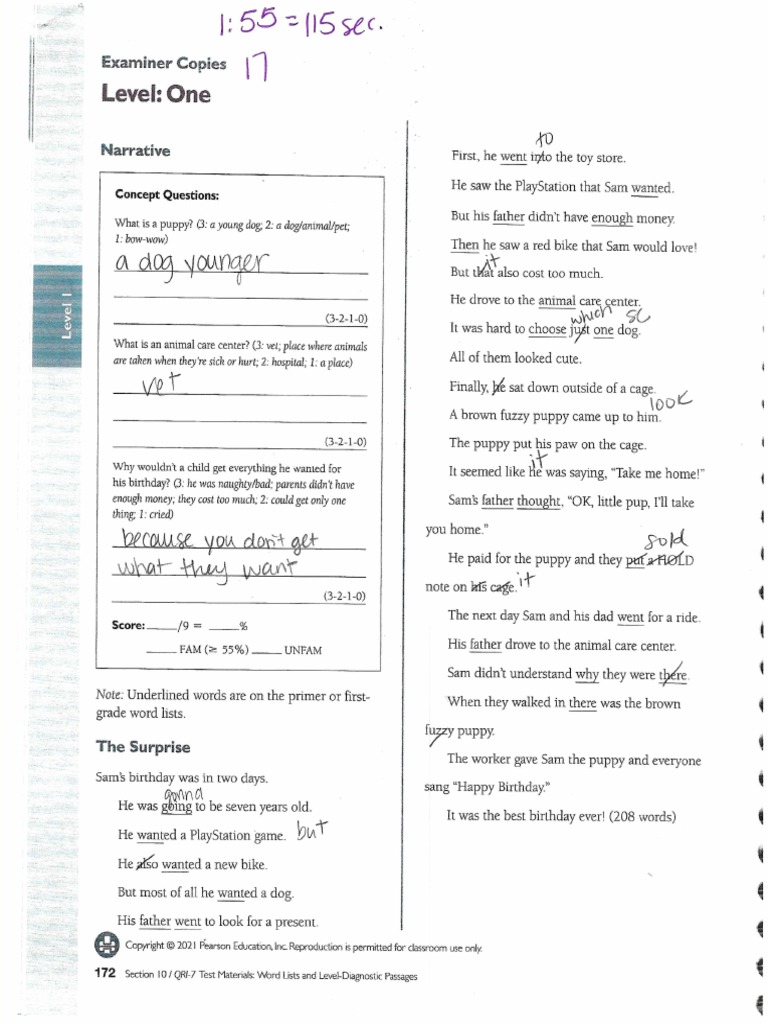 1:55 = 115 sec.
Examiner Copies
17
Level: One
Level 1
Narrative
Concept Questions:
What is a puppy? (3: a young dog; 2: a dog/animal/pet;
1: bow-wow)
a dog younger
(3-2-1-0)
What is an animal care center? (3: vet; place where animals
are taken when they're sick or hurt; 2: hospital; 1: a place)
vet
(3-2-1-0)
Why wouldn't a child get everything he wanted for
his birthday? (3: he was naughty/bad; parents didn't have
enough money; they cost too much; 2: could get only one
thing; 1: cried)
because you don't get
what they want
(3-2-1-0)
Score: _____ /9 = _____ %
_____ FAM (≥ 55%) _____ UNFAM
Note: Underlined words are on the primer or first-
grade word lists.
The Surprise
Sam's birthday was in two days.
gonna
He was going to be seven years old.
He wanted a PlayStation game. but
He also wanted a new bike.
But most of all he wanted a dog.
His father went to look for a present.
to
First, he went into the toy store.
He saw the PlayStation that Sam wanted.
But his father didn't have enough money.
Then he saw a red bike that Sam would love!
it
But that also cost too much.
He drove to the animal care center.
which sc
It was hard to choose just one dog.
All of them looked cute.
Finally, he sat down outside of a cage.
look
A brown fuzzy puppy came up to him.
The puppy put his paw on the cage.
it
It seemed like he was saying, "Take me home!"
Sam's father thought, "OK, little pup, I'll take
you home."
sold
He paid for the puppy and they put a HOLD
note on his cage. it
The next day Sam and his dad went for a ride.
His father drove to the animal care center.
Sam didn't understand why they were there.
When they walked in there was the brown
fuzzy puppy.
The worker gave Sam the puppy and everyone
sang "Happy Birthday."
It was the best birthday ever! (208 words)
Copyright © 2021 Pearson Education, Inc. Reproduction is permitted for classroom use only.
172 Section 10 / QRI-7 Test Materials: Word Lists and Level-Diagnostic Passages